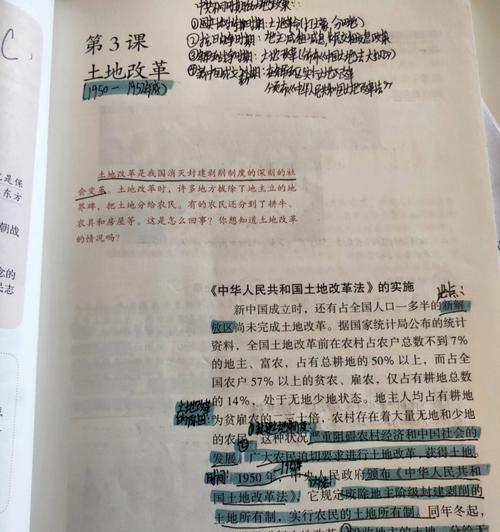 第3课
土地改革
(1950-1952年底)
中共不同时期的土地政策:
①国共对峙时期:土地革命(打土豪、分田地)
②抗日战争时期:地主减租减息,农民交租交息政策
③解放战争时期:土地改革
土地改革是我国消灭封建剥削制度的深刻的社
会变革。土地改革时,许多地方拔除了地主立的地
界碑,把土地分给农民。有的农民还分到了耕牛、
农具和房屋等。这是怎么回事?你想知道土地改革
的情况吗?
《中华人民共和国土地改革法》的实施
地点:
新中国成立时,还有占全国人口一多半的新解
放区尚未完成土地改革。据国家统计局公布的统计
资料,全国土地改革前在农村占农户总数不到7%
的地主、富农,占有总耕地的50%以上,而占全
国农户57%以上的贫农、雇农,仅占有耕地总数
的14%,处于无地少地状态。地主人均占有耕地
土地改革
的原因:
为贫雇农的二三十倍,农村存在着大量无地和少地
的农民。这种状况严重阻碍农村经济和中国社会的
发展。广大农民迫切要求进行土地改革,获得土地。
时间:
1950年,中央人民政府颁布《中华人民共和
国土地改革法》,它规定废除地主阶级封建剥削的
土地所有制,实行农民的土地所有制。同年冬起,
C
是保
东方
朝战
念的
民志